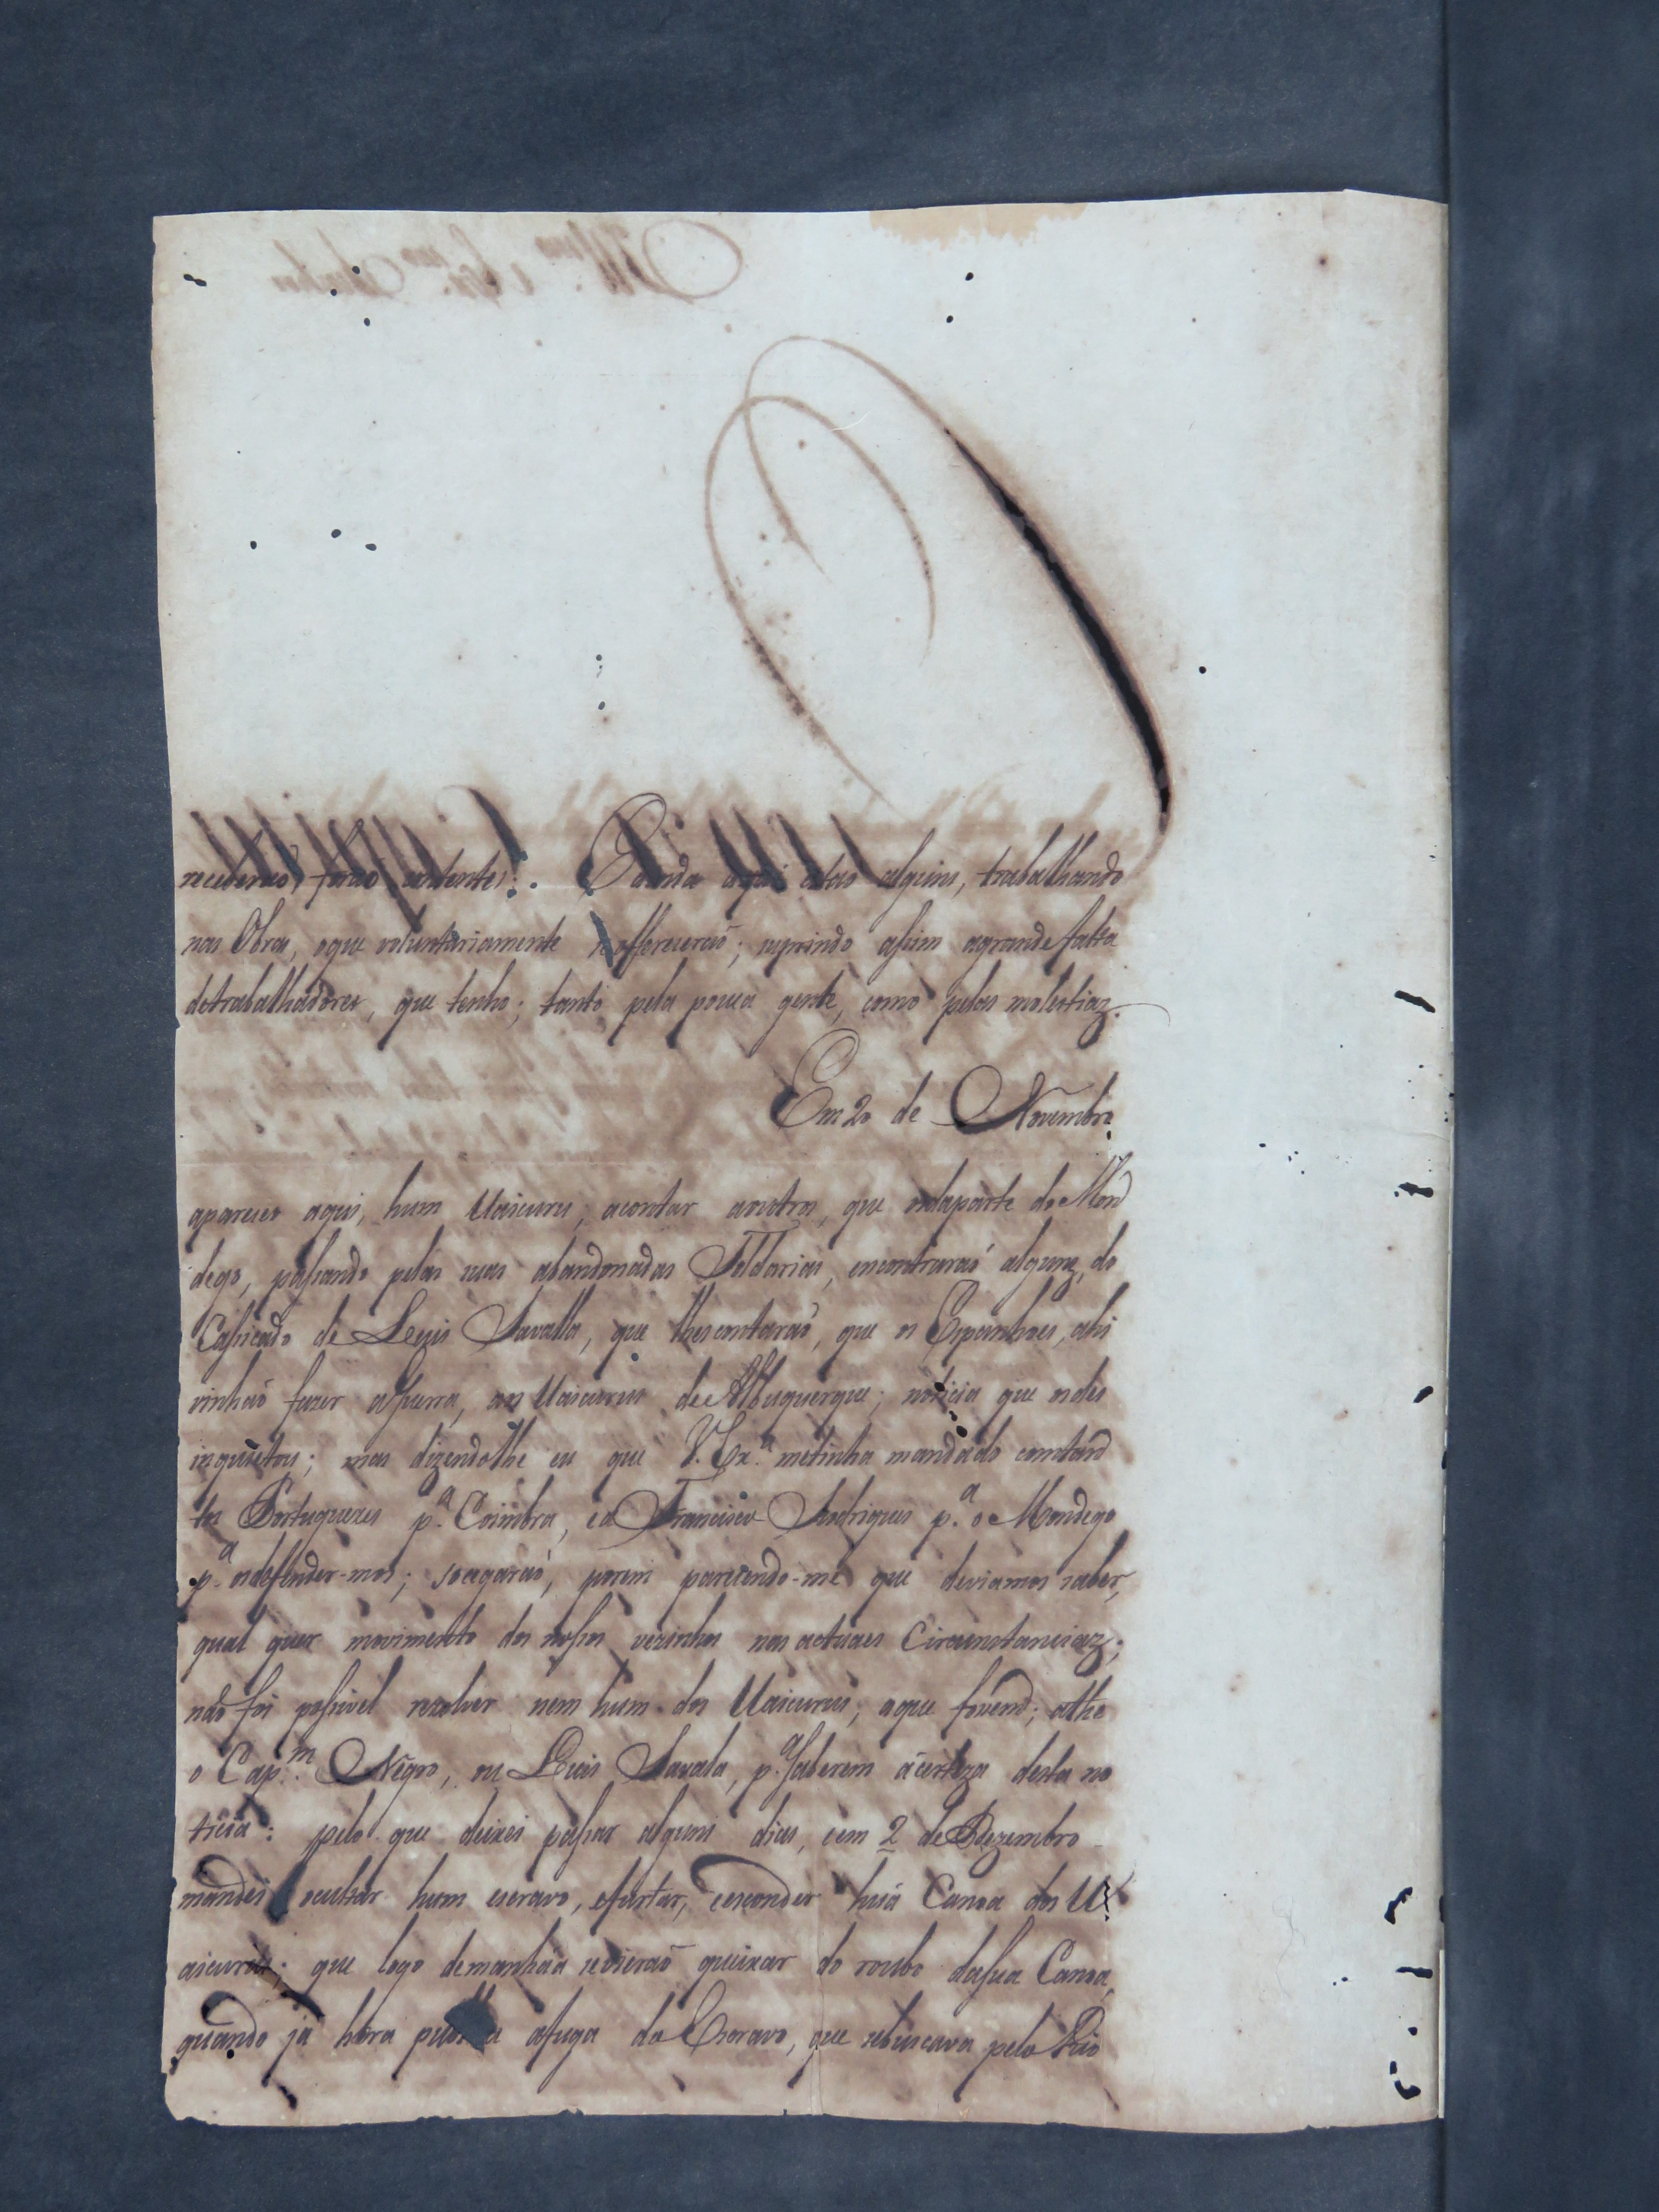 receberaõ, foraõ contentes. Eainda aqui estaõ alguns, trabalhando
nas Obras, oque voluntariamente seoffereceraõ; suprindo assim agrande falta
detrabalhadores, que tenho; tanto pela pouca gente, como pelas molestiaz.
Em 20 de Novembro
apareceo aqui, hum Uaicuru, acontar aoutros, que vindaparte do Mon
dego, passando pelas suas abandonadas Tolderias, encontraraó alguns, do
Capicado de Luis Zavalla, que lhescontaraó, que os Espanhoes, ahi
vinhaõ fazer aGuerra, aos Uaicurus de Albuquerque; noticia que osdes
inquietou; mas dizendolhe eu que V. Ex.ª metinha mandado comtan
tos Portuguezes p.ª Coimbra, ea Francisco Rodrigues p.ª o Mondego
p.ª osdefender-mos; socegaraó, porem parecendo-me que deviamos saber,
qual quer movimento dos nossos vezinhos nas actuaes Circunstanciaz;
não foi possivel rezolver nem hum dos Uaicurús, aque fossem; athe
o Cap.m Negro, ou Luis Zavala, p.ª saberem acerteza desta no
ticia: pelo que deixei passar alguns dias, eem 2 de Dezembro
mandei ocultar hum escravo, efurtar, eesconder huá Canoa dos U
aicurús; que logo demanháa sevieraõ queixar do roubo dasua Canoa,
quando já héra publica afuga do Escravo, que sebuscava pelo Rio